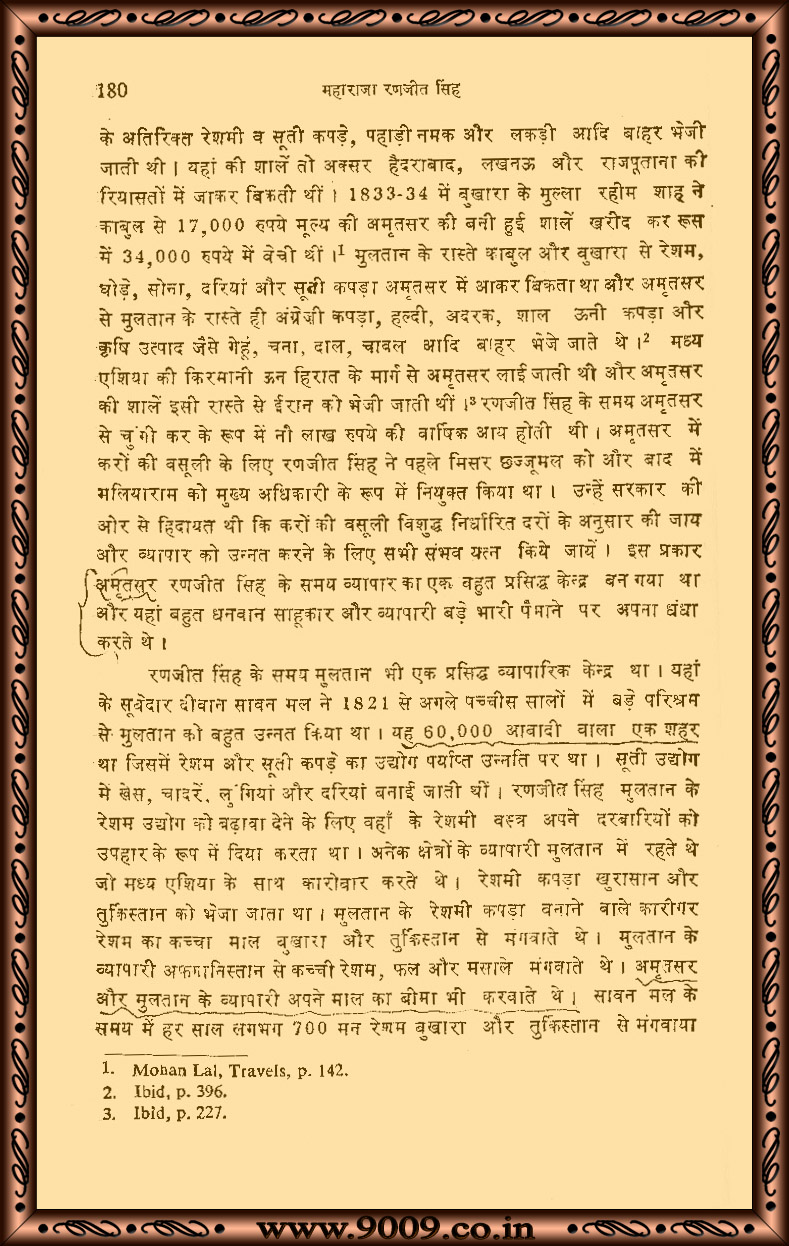 180
महाराजा रणजीत सिंह
के अतिरिक्त रेशमी व सूती कपड़े, पहाड़ी नमक और लकड़ी आदि बाहर भेजी
जाती थी । यहां की शालें तो अक्सर हैदराबाद, लखनऊ और राजपूताना की
रियासतों में जाकर बिकती थीं । 1833-34 में बुखारा के मुल्ला रहीम शाह ने
काबुल से 17,000 रुपये मूल्य की अमृतसर की बनी हुई शालें खरीद कर रूस
में 34,000 रुपये में बेची थीं ।1 मुलतान के रास्ते काबुल और बुखारा से रेशम,
घोड़े, सोना, दरियां और सूती कपड़ा अमृतसर में आकर बिकता था और अमृतसर
से मुलतान के रास्ते ही अंग्रेज़ी कपड़ा, हल्दी, अदरक, शाल ऊनी कपड़ा और
कृषि उत्पाद जैसे गेहूं, चना, दाल, चावल आदि बाहर भेजे जाते थे ।2 मध्य
एशिया की किरमानी ऊन हिरात के मार्ग से अमृतसर लाई जाती थी और अमृतसर
की शालें इसी रास्ते से ईरान को भेजी जाती थीं ।3 रणजीत सिंह के समय अमृतसर
से चुंगी कर के रूप में नौ लाख रुपये की वार्षिक आय होती थी । अमृतसर में
करों की वसूली के लिए रणजीत सिंह ने पहले मिसर छज्जूमल को और बाद में
मलियाराम को मुख्य अधिकारी के रूप में नियुक्त किया था । उन्हें सरकार की
ओर से हिदायत थी कि करों की वसूली विशुद्ध निर्धारित दरों के अनुसार की जाय
और व्यापार को उन्नत करने के लिए सभी संभव यत्न किये जायें । इस प्रकार
अमृतसर रणजीत सिंह के समय व्यापार का एक बहुत प्रसिद्ध केन्द्र बन गया था
और यहां बहुत धनवान साहूकार और व्यापारी बड़े भारी पैमाने पर अपना धंधा
करते थे ।
रणजीत सिंह के समय मुलतान भी एक प्रसिद्ध व्यापारिक केन्द्र था । यहां
के सूबेदार दीवान सावन मल ने 1821 से अगले पच्चीस सालों में बड़े परिश्रम
से मुलतान को बहुत उन्नत किया था । यह 60,000 आबादी वाला एक शहर
था जिसमें रेशम और सूती कपड़े का उद्योग पर्याप्त उन्नति पर था । सूती उद्योग
में खेस, चादरें, लुंगियां और दरियां बनाई जाती थीं । रणजीत सिंह मुलतान के
रेशम उद्योग को बढ़ावा देने के लिए वहाँ के रेशमी वस्त्र अपने दरबारियों को
उपहार के रूप में दिया करता था । अनेक क्षेत्रों के व्यापारी मुलतान में रहते थे
जो मध्य एशिया के साथ कारोबार करते थे । रेशमी कपड़ा खुरासान और
तुर्किस्तान को भेजा जाता था । मुलतान के रेशमी कपड़ा बनाने वाले कारीगर
रेशम का कच्चा माल बुखारा और तुर्किस्तान से मंगवाते थे । मुलतान के
व्यापारी अफगानिस्तान से कच्ची रेशम, फल और मसाले मंगवाते थे । अमृतसर
और मुलतान के व्यापारी अपने माल का बीमा भी करवाते थे । सावन मल के
समय में हर साल लगभग 700 मन रेशम बुखारा और तुर्किस्तान से मंगवाया
1. Mohan Lal, Travels, p. 142.
2. Ibid, p. 396.
3. Ibid, p. 227.
www.9009.co.in